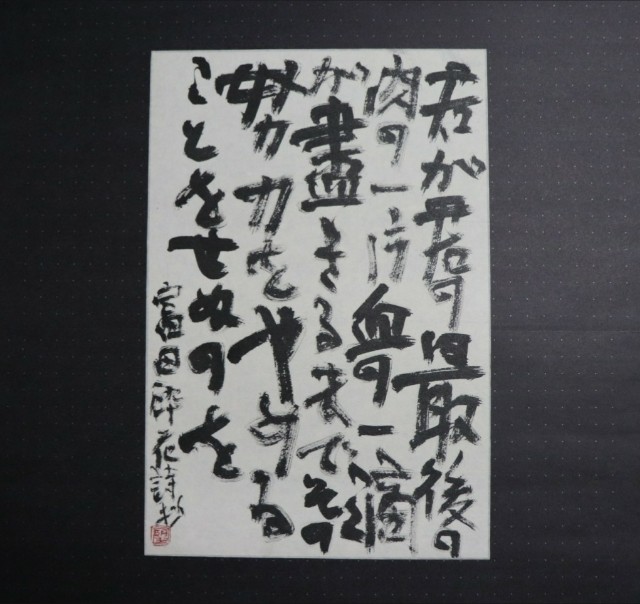 君が君の最後の
肉の一片血の一滴
が盡きるまでその
努力をやめる
ことをせぬのを
富田砕花詩抄